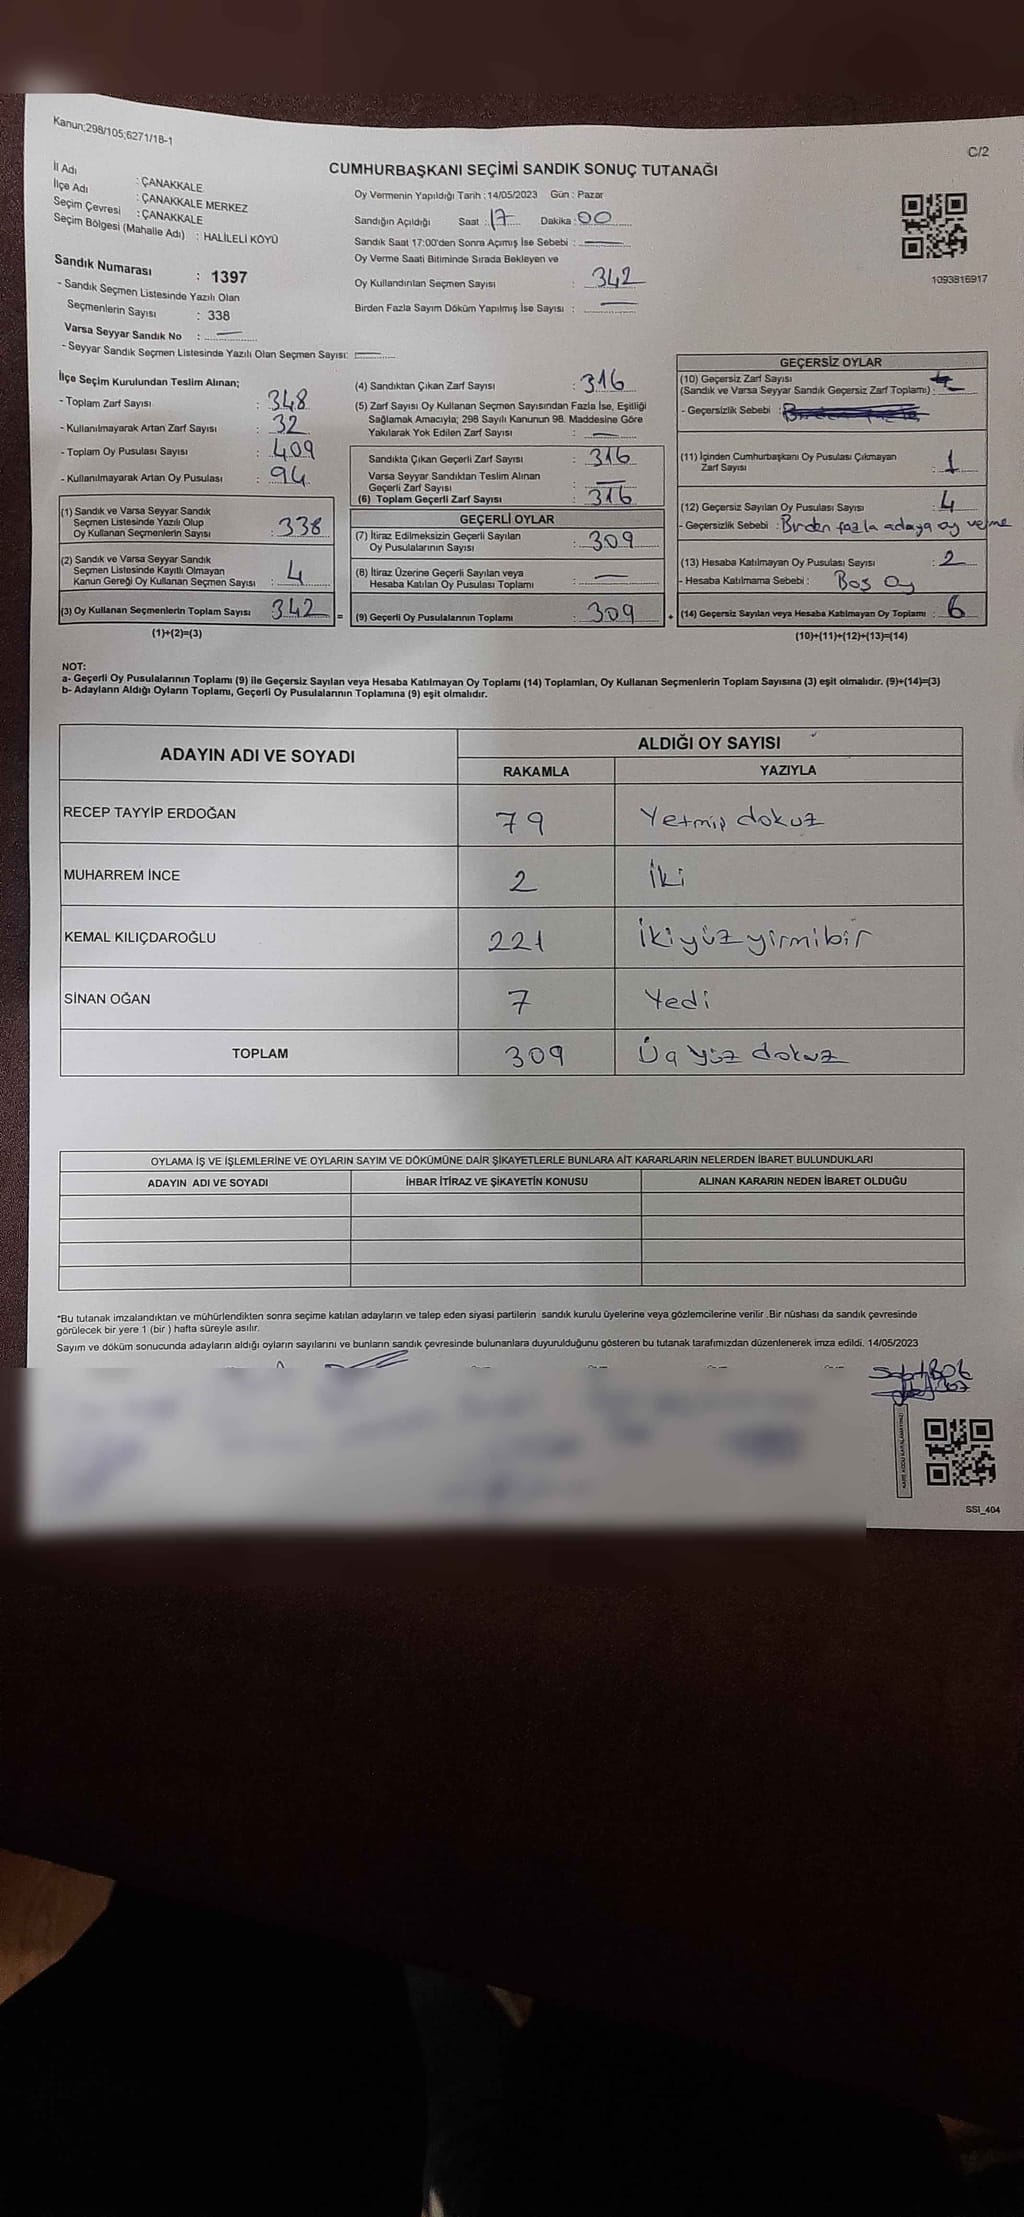 Kanun;298/105;6271/18-1
C/2
CUMHURBAŞKANI SEÇİMİ SANDIK SONUÇ TUTANAĞI
İl Adı : ÇANAKKALE
İlçe Adı : ÇANAKKALE MERKEZ
Seçim Çevresi : ÇANAKKALE
Seçim Bölgesi (Mahalle Adı) : HALİLELİ KÖYÜ
Sandık Numarası : 1397
- Sandık Seçmen Listesinde Yazılı Olan
Seçmenlerin Sayısı : 338
Varsa Seyyar Sandık No : —
- Seyyar Sandık Seçmen Listesinde Yazılı Olan Seçmen Sayısı: —
Oy Vermenin Yapıldığı Tarih : 14/05/2023 Gün : Pazar
Sandığın Açıldığı Saat : 17 Dakika : 00
Sandık Saat 17:00'den Sonra Açımış İse Sebebi : —
Oy Verme Saati Bitiminde Sırada Bekleyen ve
Oy Kullandırılan Seçmen Sayısı : 342
Birden Fazla Sayım Döküm Yapılmış İse Sayısı : —
1093816917
İlçe Seçim Kurulundan Teslim Alınan;
- Toplam Zarf Sayısı : 348
- Kullanılmayarak Artan Zarf Sayısı : 32
- Toplam Oy Pusulası Sayısı : 409
- Kullanılmayarak Artan Oy Pusulası : 94
(1) Sandık ve Varsa Seyyar Sandık
Seçmen Listesinde Yazılı Olup
Oy Kullanan Seçmenlerin Sayısı : 338
(2) Sandık ve Varsa Seyyar Sandık
Seçmen Listesinde Kayıtlı Olmayan
Kanun Gereği Oy Kullanan Seçmen Sayısı : 4
(3) Oy Kullanan Seçmenlerin Toplam Sayısı 342 =
(1)+(2)=(3)
(4) Sandıktan Çıkan Zarf Sayısı : 316
(5) Zarf Sayısı Oy Kullanan Seçmen Sayısından Fazla İse, Eşitliği
Sağlamak Amacıyla; 298 Sayılı Kanunun 98. Maddesine Göre
Yakılarak Yok Edilen Zarf Sayısı : —
Sandıkta Çıkan Geçerli Zarf Sayısı : 316
Varsa Seyyar Sandıktan Teslim Alınan
Geçerli Zarf Sayısı : —
(6) Toplam Geçerli Zarf Sayısı : 316
GEÇERLİ OYLAR
(7) İtiraz Edilmeksizin Geçerli Sayılan
Oy Pusulalarının Sayısı : 309
(8) İtiraz Üzerine Geçerli Sayılan veya
Hesaba Katılan Oy Pusulası Toplamı : —
(9) Geçerli Oy Pusulalarının Toplamı : 309 +
GEÇERSİZ OYLAR
(10) Geçersiz Zarf Sayısı
(Sandık ve Varsa Seyyar Sandık Geçersiz Zarf Toplamı) :
- Geçersizlik Sebebi :
(11) İçinden Cumhurbaşkanı Oy Pusulası Çıkmayan
Zarf Sayısı : 1
(12) Geçersiz Sayılan Oy Pusulası Sayısı : 4
- Geçersizlik Sebebi : Birden fazla adaya oy verme
(13) Hesaba Katılmayan Oy Pusulası Sayısı : 2
- Hesaba Katılmama Sebebi : Boş Oy
(14) Geçersiz Sayılan veya Hesaba Katılmayan Oy Toplamı : 6
(10)+(11)+(12)+(13)=(14)
NOT:
a- Geçerli Oy Pusulalarının Toplamı (9) ile Geçersiz Sayılan veya Hesaba Katılmayan Oy Toplamı (14) Toplamları, Oy Kullanan Seçmenlerin Toplam Sayısına (3) eşit olmalıdır. (9)+(14)=(3)
b- Adayların Aldığı Oyların Toplamı, Geçerli Oy Pusulalarının Toplamına (9) eşit olmalıdır.
ADAYIN ADI VE SOYADI ALDIĞI OY SAYISI
RAKAMLA YAZIYLA
RECEP TAYYİP ERDOĞAN 79 Yetmiş dokuz
MUHARREM İNCE 2 İki
KEMAL KILIÇDAROĞLU 221 İki yüz yirmi bir
SİNAN OĞAN 7 Yedi
TOPLAM 309 Üç yüz dokuz
OYLAMA İŞ VE İŞLEMLERİNE VE OYLARIN SAYIM VE DÖKÜMÜNE DAİR ŞİKAYETLERLE BUNLARA AİT KARARLARIN NELERDEN İBARET BULUNDUKLARI
ADAYIN ADI VE SOYADI İHBAR İTİRAZ VE ŞİKAYETİN KONUSU ALINAN KARARIN NEDEN İBARET OLDUĞU
*Bu tutanak imzalandıktan ve mühürlendikten sonra seçime katılan adayların ve talep eden siyasi partilerin sandık kurulu üyelerine veya gözlemcilerine verilir. Bir nüshası da sandık çevresinde
görülecek bir yere 1 (bir ) hafta süreyle asılır.
Sayım ve döküm sonucunda adayların aldığı oyların sayılarını ve bunların sandık çevresinde bulunanlara duyurulduğunu gösteren bu tutanak tarafımızdan düzenlenerek imza edildi. 14/05/2023
SS1_404